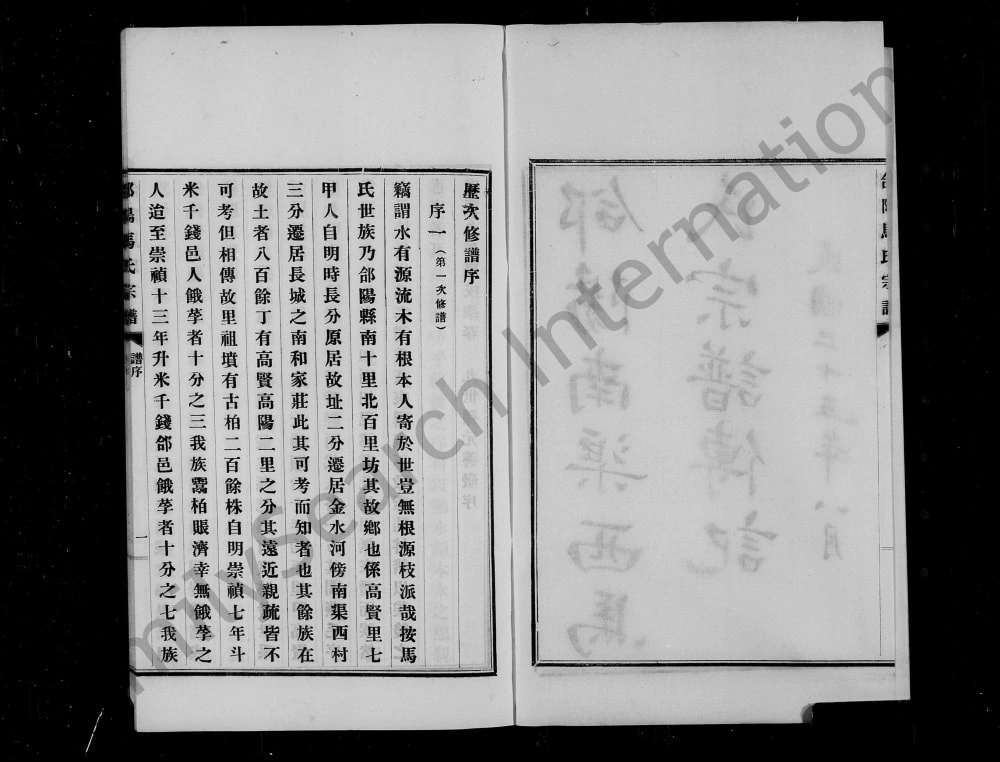 歷次修譜序
序一（第一次修譜）
竊謂水有源流木有根本人寄於世豈無根源枝派哉按馬
氏世族乃郃陽縣南十里北百里坊其故鄉也係高賢里七
甲人自明時長分原居故址二分遷居金水河傍南渠西村
三分遷居長城之南和家莊此其可考而知者也其餘族在
故土者八百餘丁有高賢高陽二里之分其遠近親疏皆不
可考但相傳故里祖墳有古柏二百餘株自明崇禎七年斗
米千錢邑人餓莩者十分之三我族鬻柏賬濟幸無餓莩之
人迨至崇禎十三年升米千錢郃邑餓莩者十分之七我族
郃陽馬氏宗譜
譜序
一
FamilySearch International